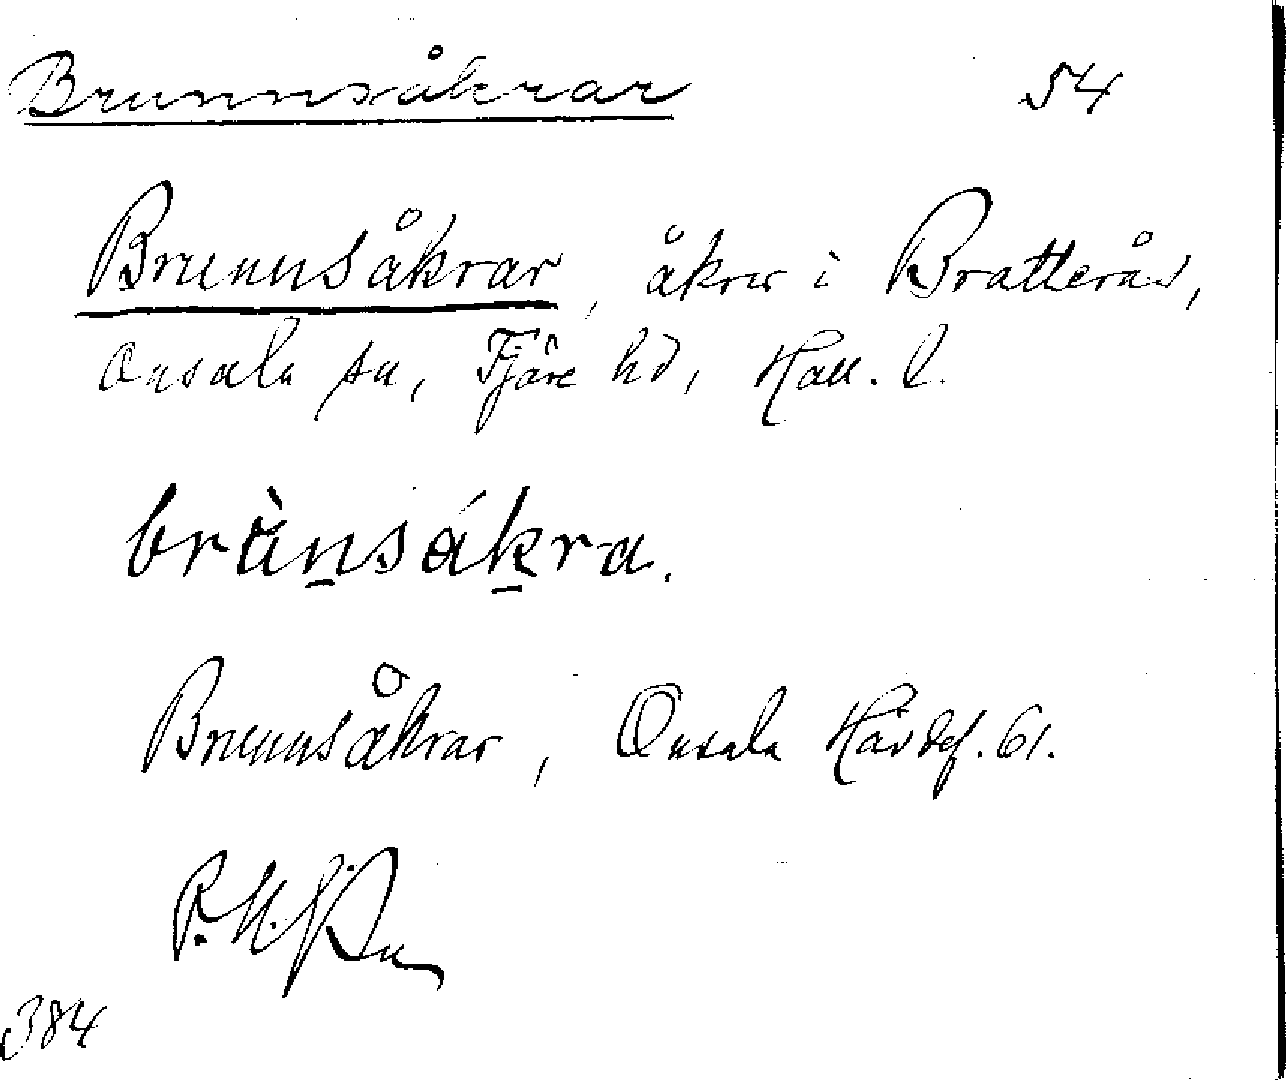 Brunnsåkrar 54
Brunnsåkrar, åkrar i Bratterås,
Onsala sn, Fjäre hd, Hall. l.
brùnsákra.
Brunnsåkrar, Onsala Hävdef. 61.
384